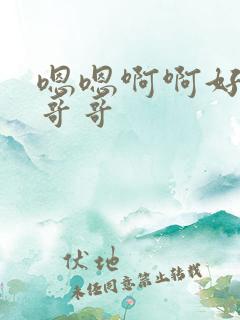 嗯嗯啊啊好
哥哥
伏地
未经同意禁止转载